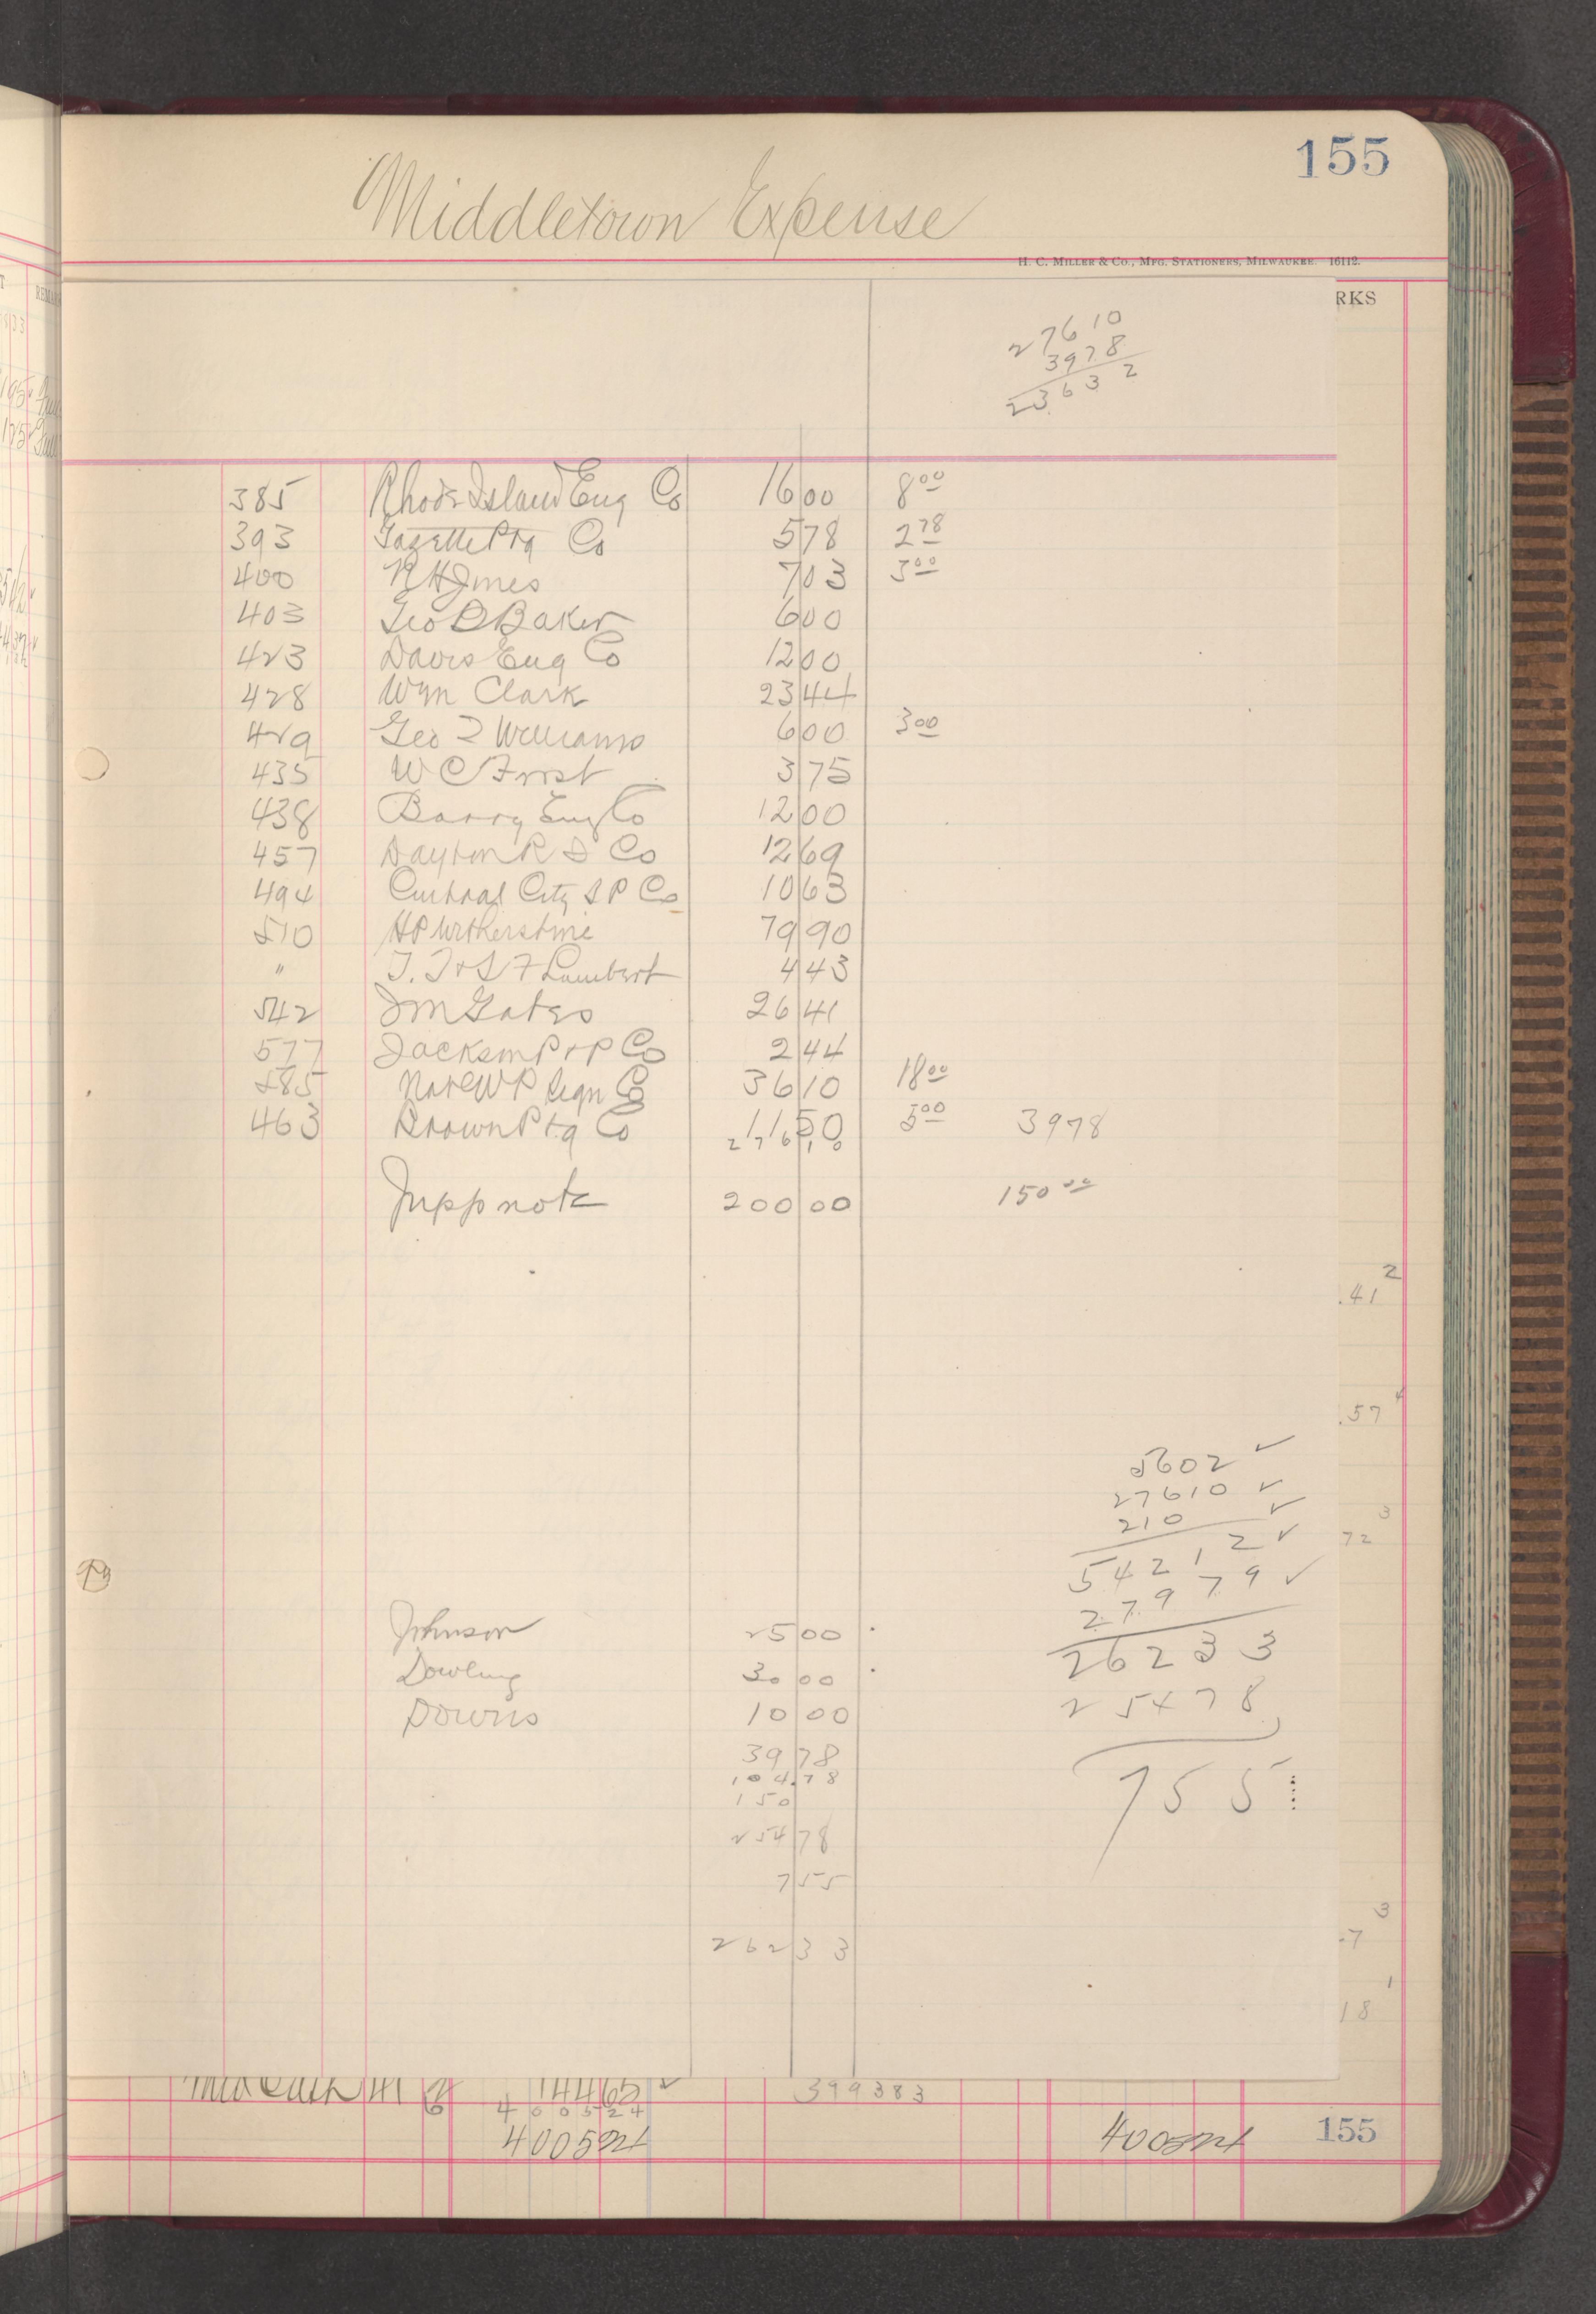 155
Middletown Expense
H. C. MILLER & CO., MFG. STATIONERS, MILWAUKEE. 16112.
RKS
27610
3978
23632
385 Rhode Island Eng Co 16 00 8 00
393 Gazette Ptg Co 5 78 2 78
400 R H Jones 7 03 3 00
403 Geo D Baker 6 00
423 Davis Eng Co 12 00
428 Wm Clark 23 44
429 Geo Williams 6 00 3 00
435 W C Frost 3 75
438 Barry Eng Co 12 00
457 Dayton R S Co 12 69
494 Central City S P Co 10 63
510 H P 79 90
" T. J & S F Lambert 4 43
542 J M Gates 26 41
577 Jackson P & P Co 2 44
585 W P Sign Co 36 10 18 00
463 Brown Ptg Co 11 50 5 00 3978
276 10
Jupp note 200 00 150 00
.41 2
.57 4
5602 ✓
27610 ✓
210 ✓
54212 ✓
72 3
27979 ✓
Johnson 25 00
26233
Dowling 30 00
Downs 10 00 25478
39 78
104.78
755
150
254 78
7 55
3
.7
262 33
1
18
14465 ✓ 399383
400524
400524 400524 155